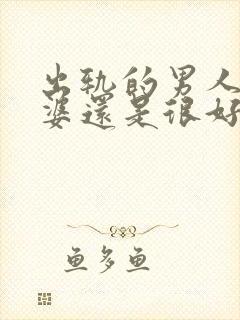 出轨的男人
婆還是很好
鱼多鱼